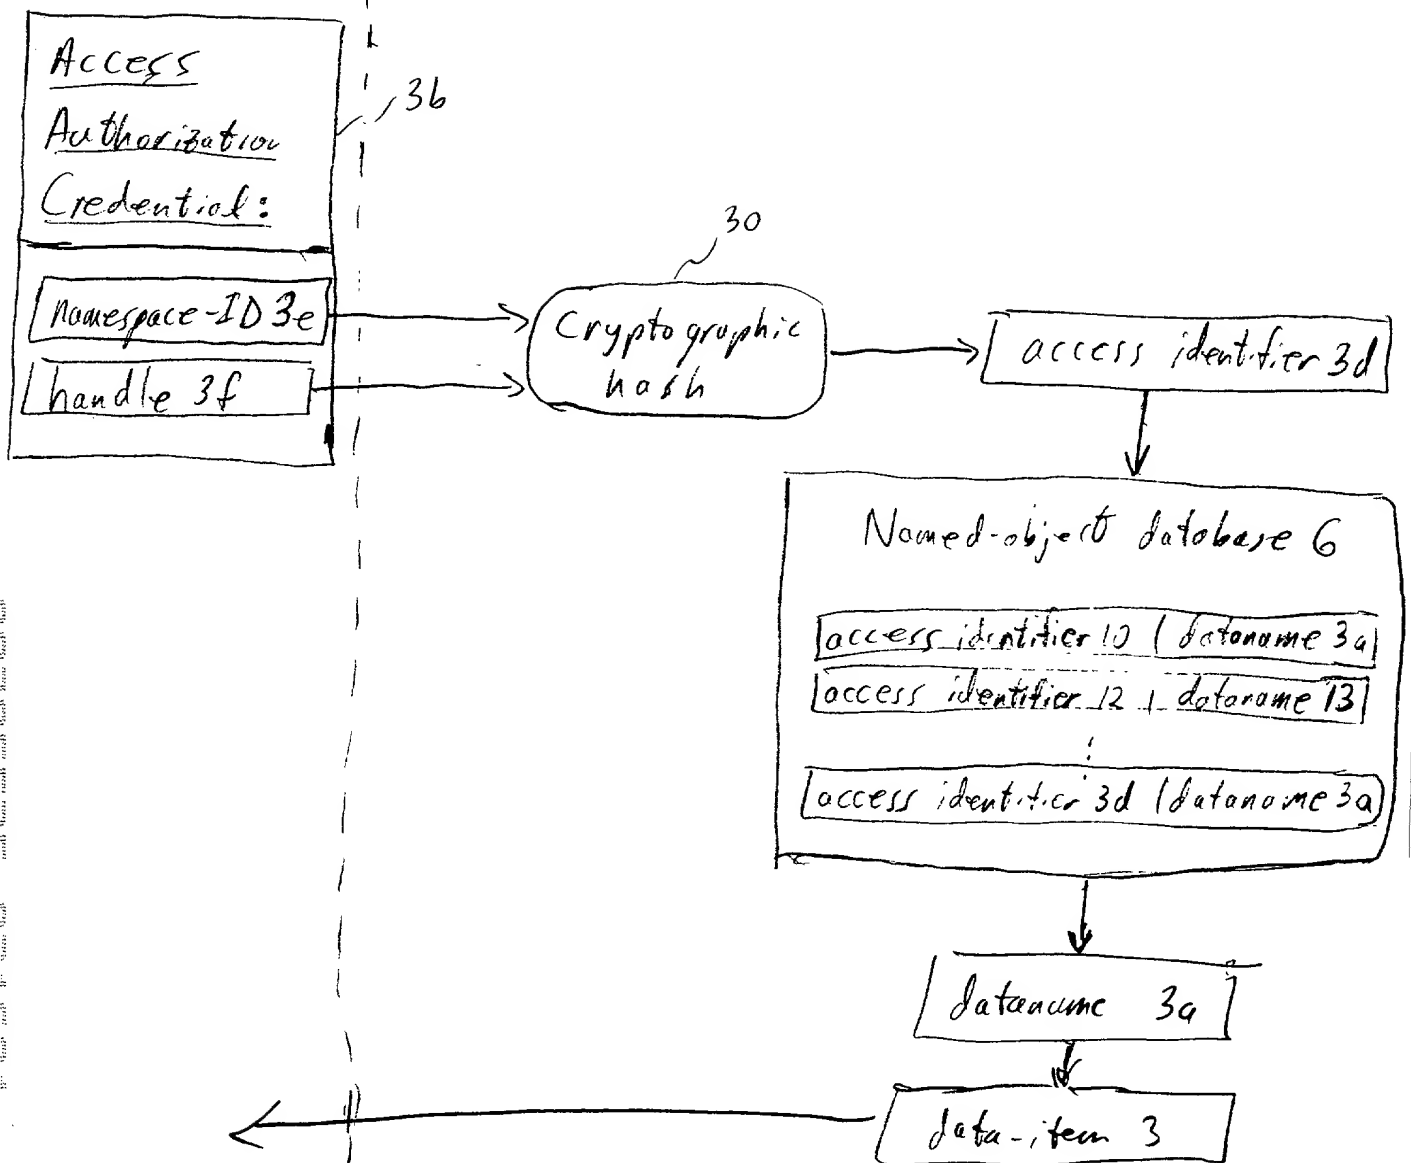 Access
Authorization
Credential:
3b
namespace-ID 3e
handle 3f
30
Cryptographic
hash
access identifier 3d
Named-object database 6
access identifier 10 | dataname 3a
access identifier 12 | dataname 13
access identifier 3d | dataname 3a
dataname 3a
data-item 3